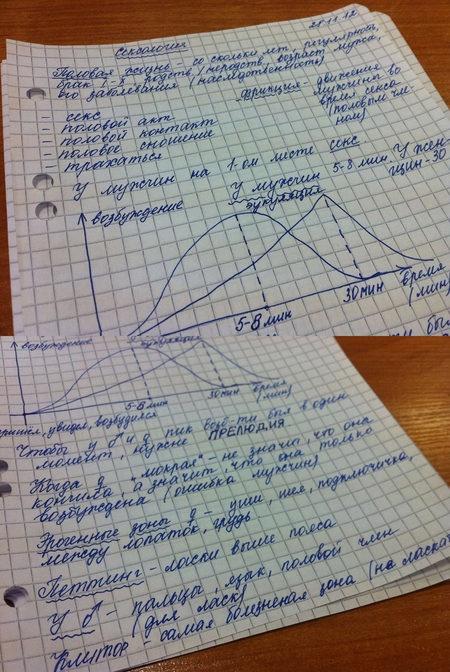 29.11.12
Сексология
Половая жизнь - со скольки лет, регулярность,
брак 1-й родств/неродств, возраст мужа,
его заболевания (наследственность)
- секс
- половой акт
- половой контакт
- половое сношение
- трахаться
Фрикция - движения
мужчины во
время секса
(половым чле-
ном)
У мужчин на 1-ом месте секс
У мужчин 5-8 мин, У жен-
щин - 30
возбуждение
эякуляция
5-8 мин
30 мин
время
(мин)
возбуждение
эякуляция
5-8 мин
30 мин
время
(мин)
пришел, увидел, возбудился
Чтобы у ♂ и ♀ пик возб-ти был в один
момент, нужна ПРЕЛЮДИЯ
Когда ♀ "мокрая" - не значит, что она
кончила, а значит, что она только
возбуждена (ошибка мужчин)
Эрогенные зоны ♀ - уши, шея, подключичка,
между лопаток, грудь
Петтинг - ласки выше пояса
У ♂ - пальцы, язык, половой член
(для ласк)
Клитор - самая болезненая зона (на ласках